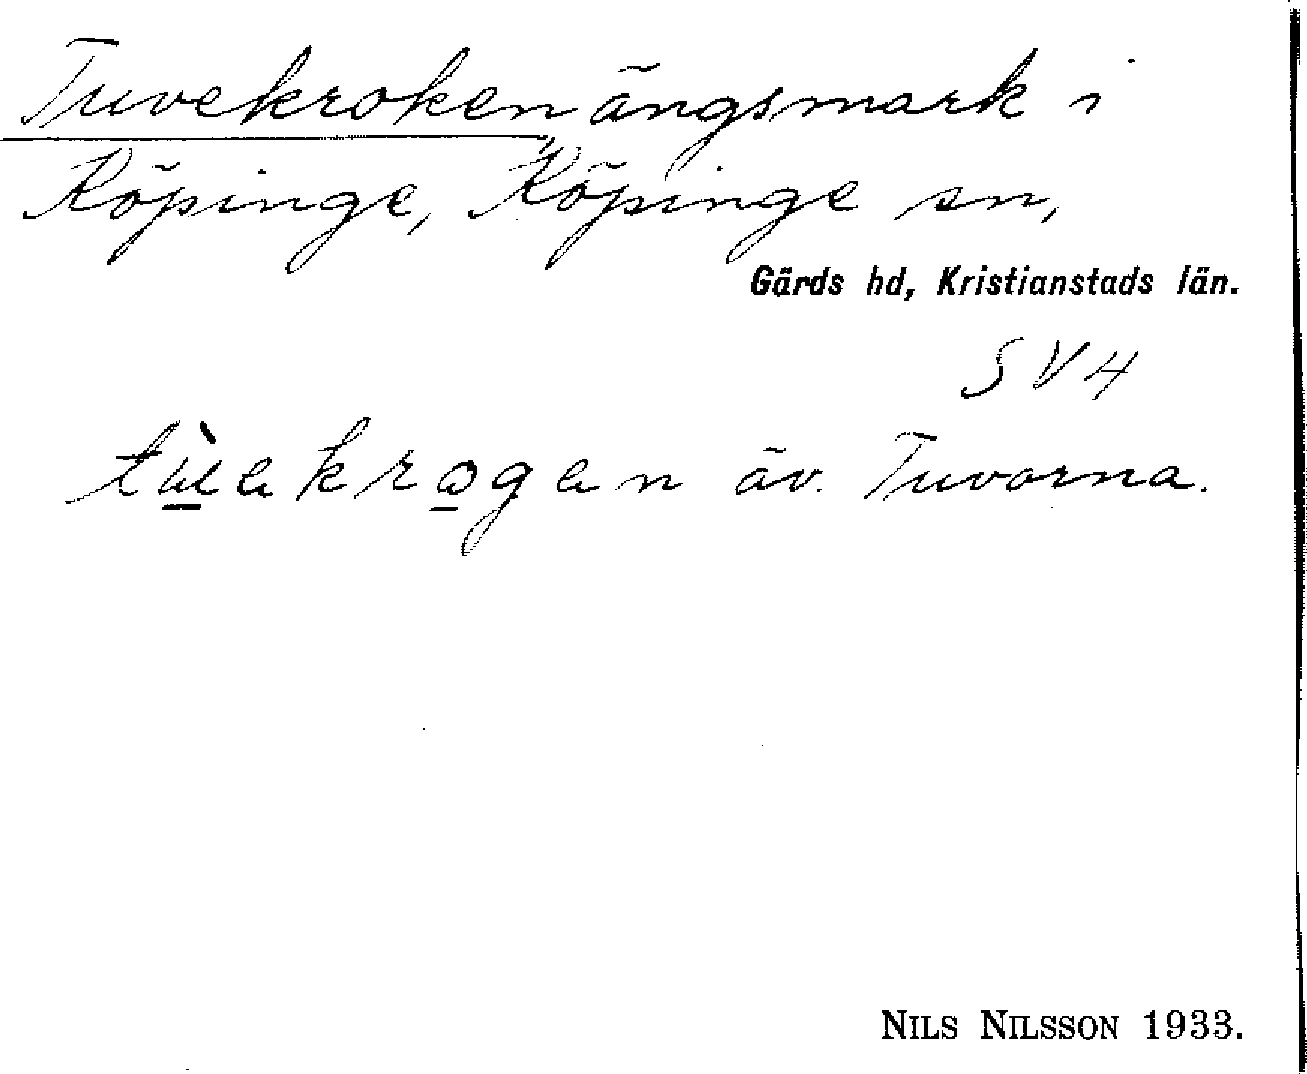 Tuvekroken, ängsmark i
Köpinge, Köpinge sn,
Gärds hd, Kristianstads län.
SV4
tùekrogen äv. Tuvorna.
NILS NILSSON 1933.